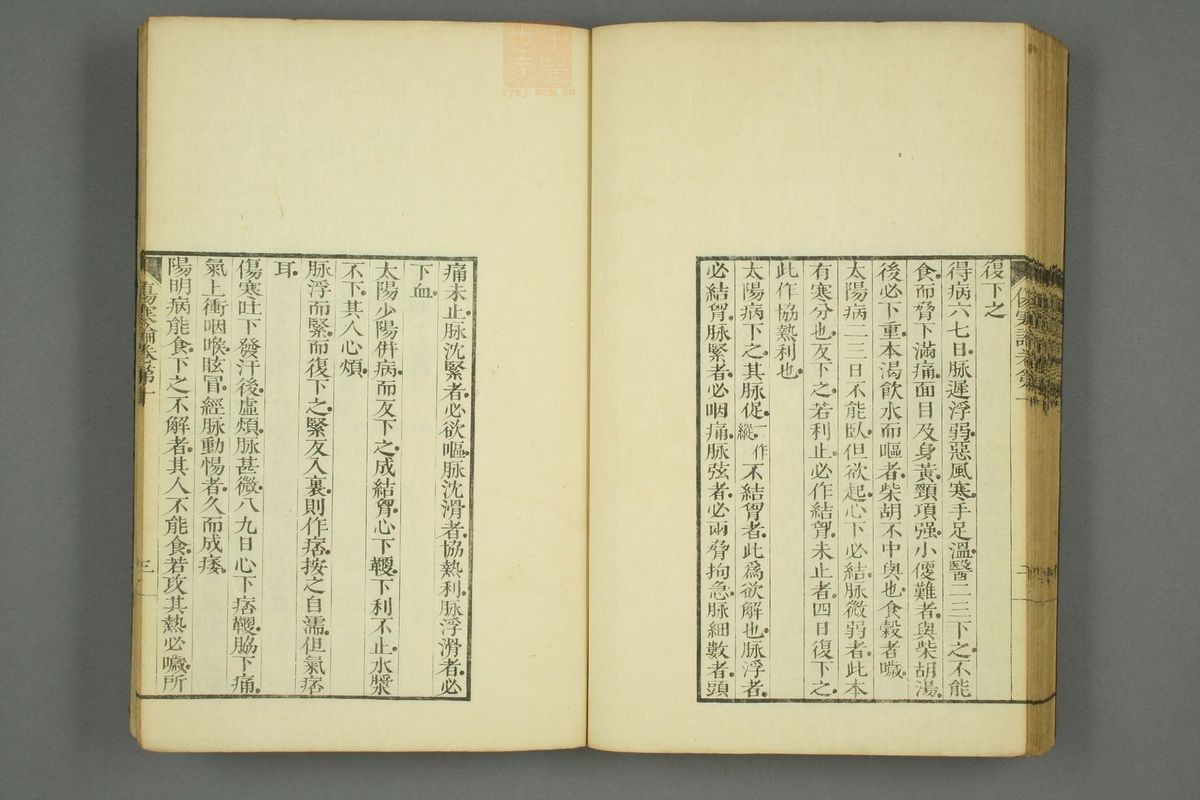 復下之
得病六七日。脉遲浮弱。惡風寒。手足溫。醫二三下之。不能
食。而脅下滿痛。面目及身黃。頸項强。小便難者。與柴胡湯。
後必下重。本渴飲水而嘔者。柴胡不中與也。食穀者噦。
太陽病二三日。不能臥。但欲起。心下必結。脉微弱者。此本
有寒分也。反下之。若利止。必作結胷。未止者。四日復下之。
此作協熱利也。
太陽病下之。其脉促。一作縱。不結胷者。此爲欲解也。脉浮者。
必結胷。脉緊者。必咽痛。脉弦者。必兩脅拘急。脉細數者。頭
傷寒論卷第一
二
痛未止。脉沈緊者。必欲嘔。脉沈滑者。協熱利。脉浮滑者。必
下血。
太陽少陽併病。而反下之。成結胷。心下鞕。下利不止。水漿
不下。其人心煩。
脉浮而緊。而復下之。緊反入裏。則作痞。按之自濡。但氣痞
耳。
傷寒吐下發汗後。虛煩。脉甚微。八九日心下痞鞕。脇下痛。
氣上衝咽喉。眩冒。經脉動惕者。久而成痿。
陽明病能食。下之不解者。其人不能食。若攻其熱必噦。所
傷寒論卷第一
三
中醫世家
zysj.com.cn